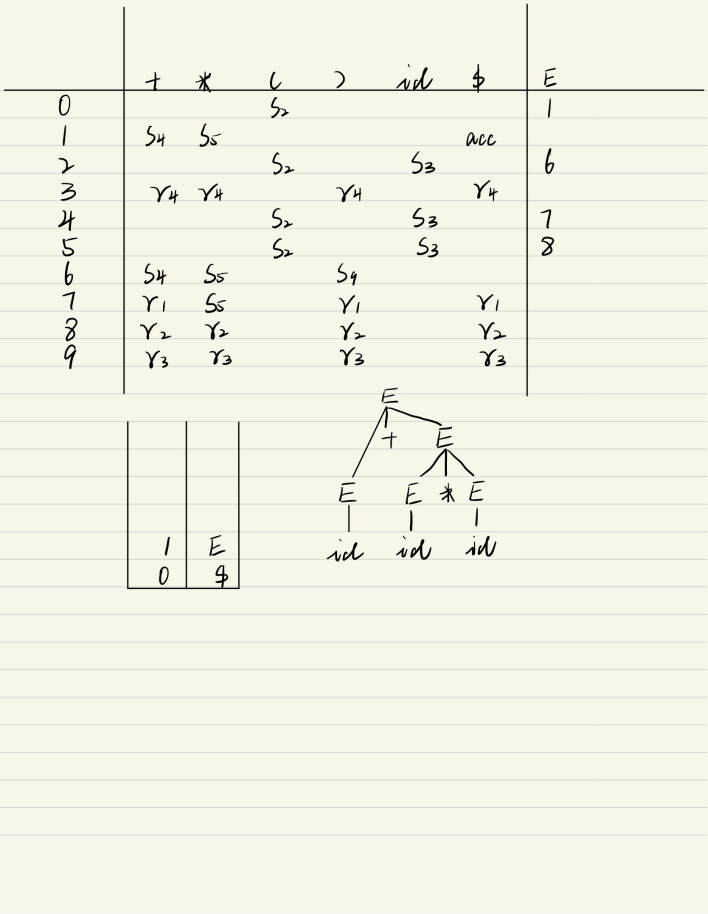 + * ( ) id $ E
0 S2 1
1 S4 S5 acc
2 S2 S3 6
3 r4 r4 r4 r4
4 S2 S3 7
5 S2 S3 8
6 S4 S5 S9
7 r1 S5 r1 r1
8 r2 r2 r2 r2
9 r3 r3 r3 r3
E
+ E
E E * E
1 E id id id
0 $